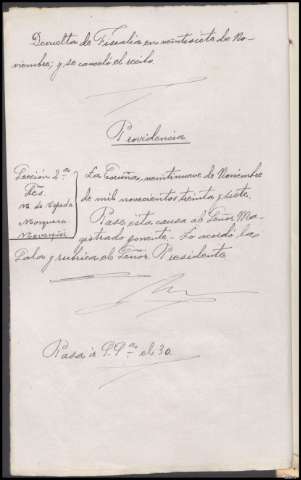 Devuelta de Fiscalía en veintisiete de No-
viembre; y se canceló el recibo.
Providencia
Sección 2.ª
Sres.
La Coruña, veintinueve de Noviembre
de mil novecientos treinta y siete.
Mosquera
Pase esta causa al Señor Ma-
gistrado ponente.- Lo acordó la
Sala y rubrica el Señor Presidente
Pasa a P.P.ª el 30